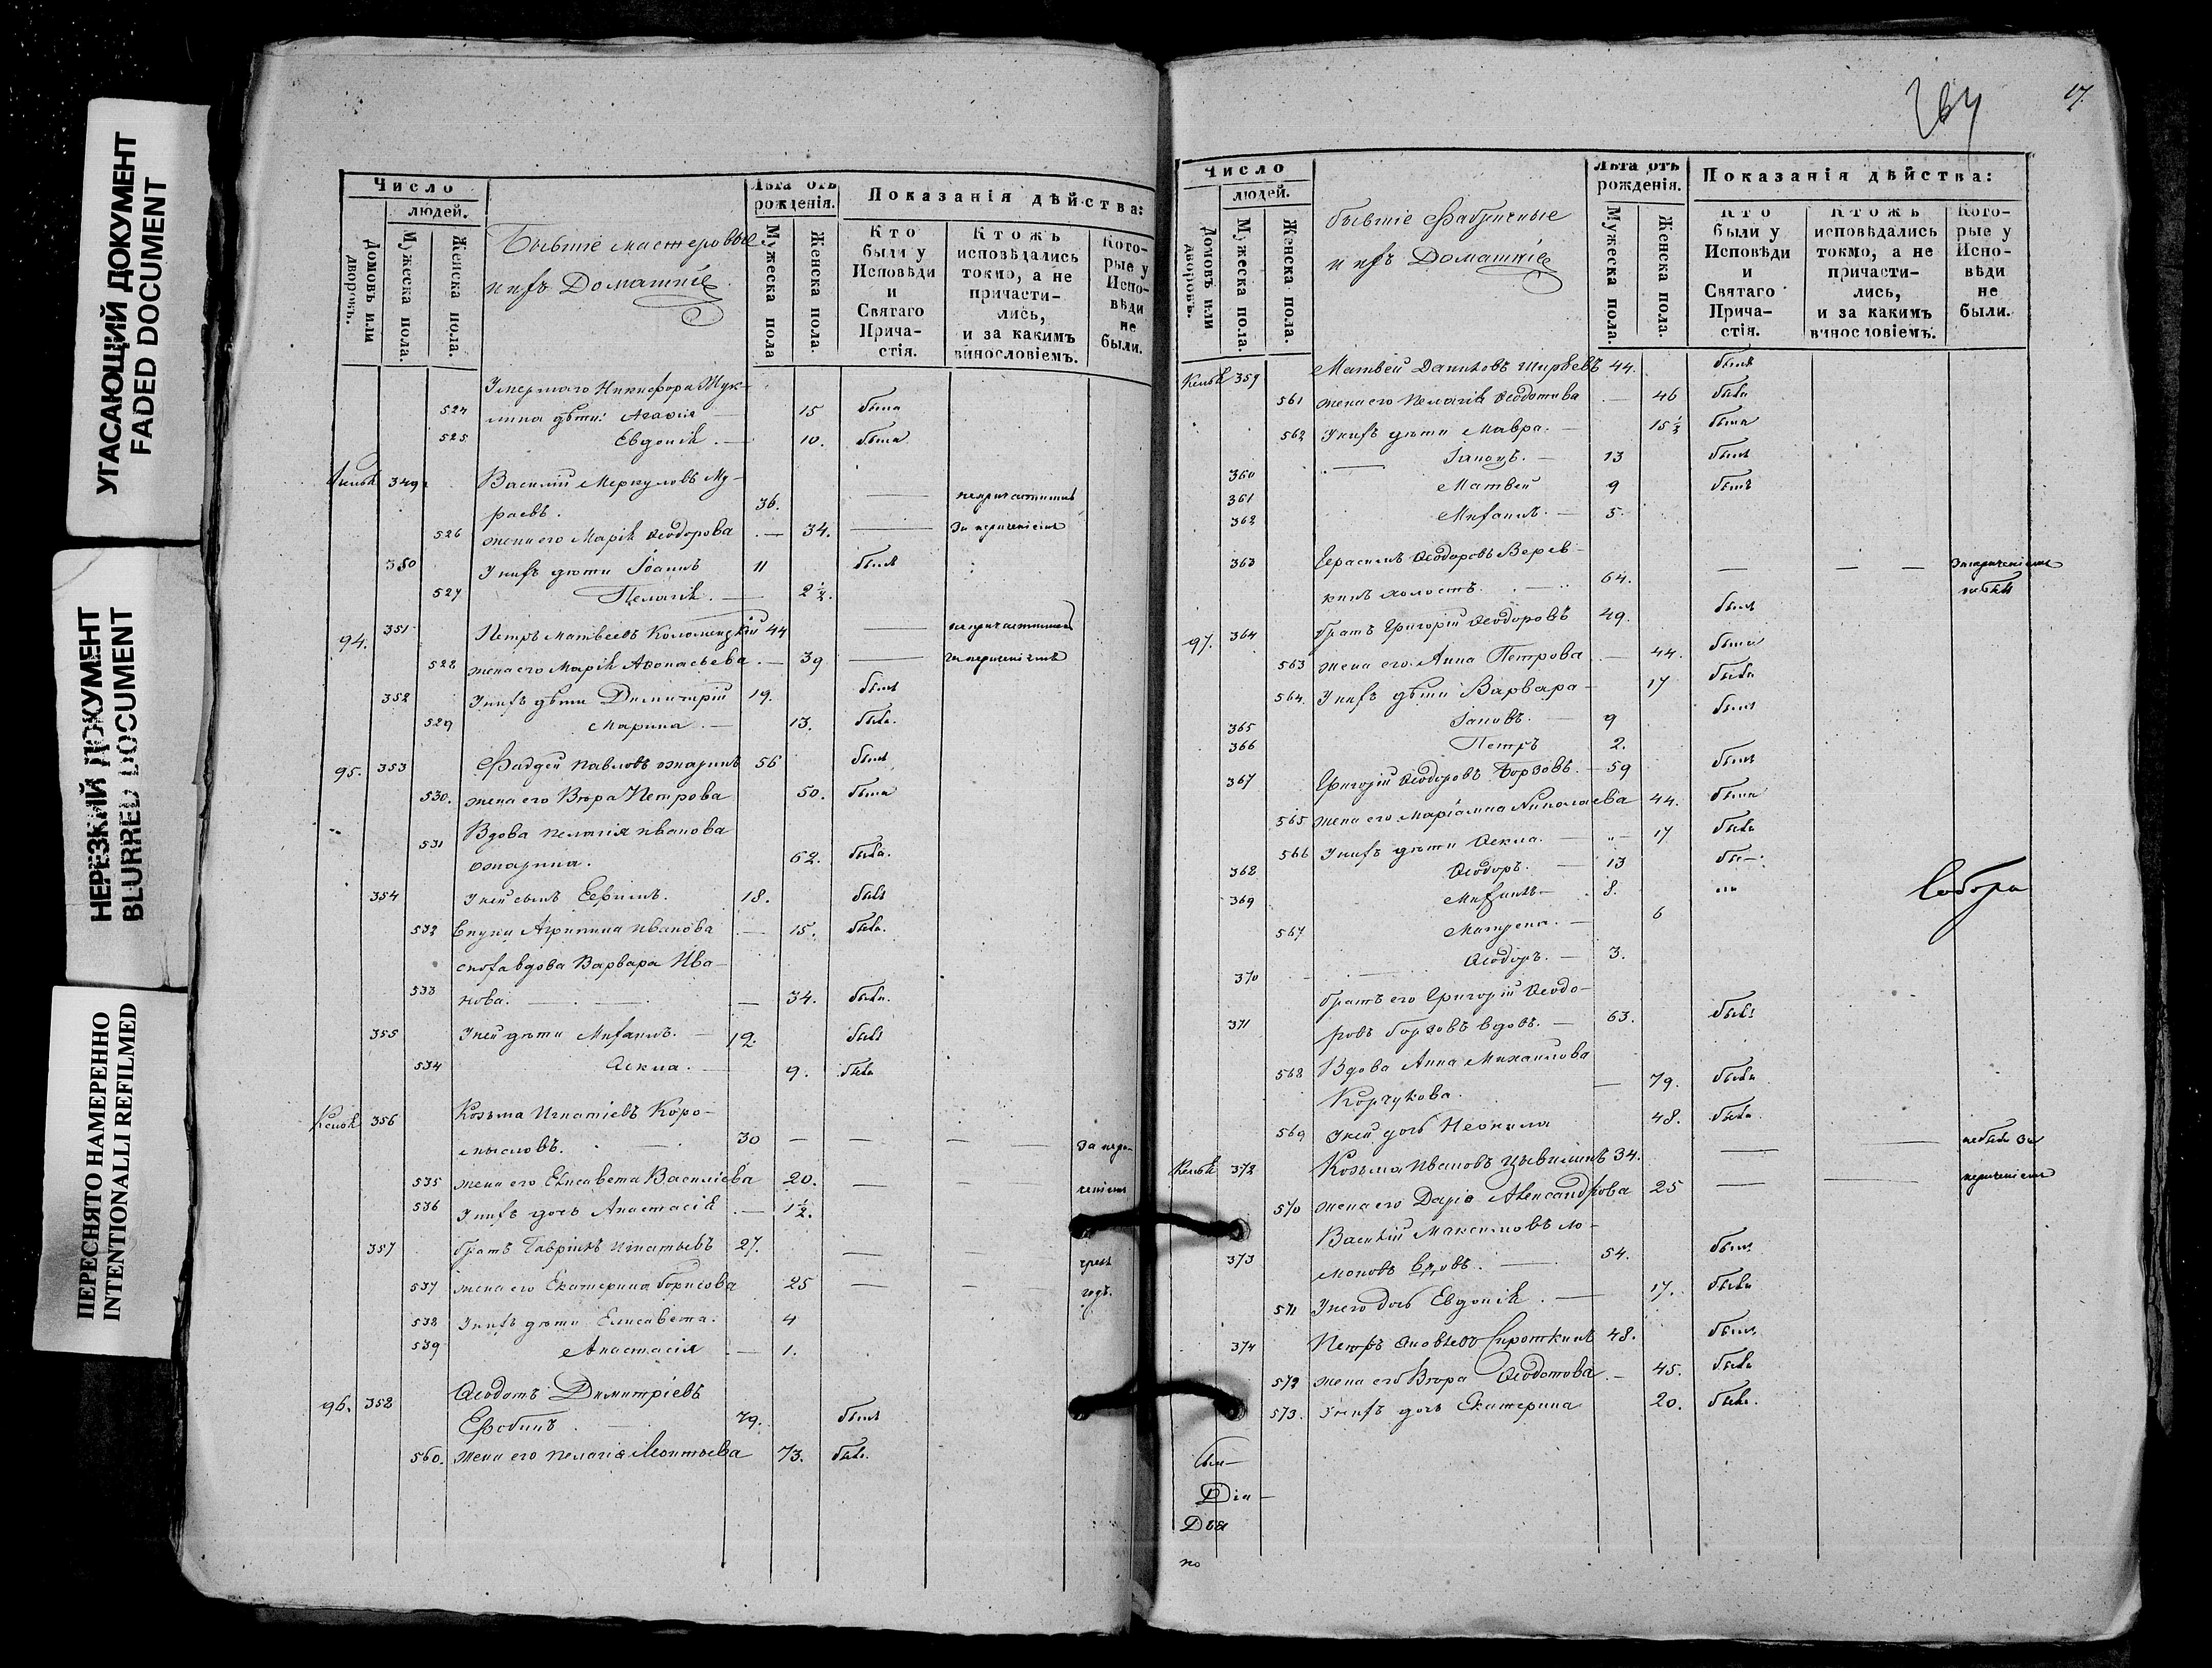 УГАСАЮЩИЙ ДОКУМЕНТ
FADED DOCUMENT
НЕРЕЗКИЙ ДОКУМЕНТ
BLURRED DOCUMENT
ПЕРЕСНЯТО НАМЕРЕННО
INTENTIONALLI REFILMED
Число
людей.
Домовъ или дворовъ.
Мужеска пола.
Женска пола.
Бывшіе мастеровые
и ихъ Домашніе
Лѣта отъ рожденія.
Мужеска пола
Женска пола.
Показанія дѣйства:
Кто были у Исповѣди и Святаго Прича-стія.
Ктожъ исповѣдались токмо, а не причасти-лись, и за какимъ винословіемъ.
Кото-рые у Испо-вѣди не были.
Умершаго Никифора
524 дѣти: Агафія 15 была
525 Евдокія 10. была
349 Василій Меркуловъ Му-
раевъ. 36.
526 жена его Марія Ѳеодорова 34.
350 У нихъ дѣти Іоаннъ 11 былъ
527 Пелагія. 2 1/2.
94. 351 Петръ Матвеевъ 44
528 жена его Марія Аѳонасьева 39
352 У нихъ дѣти Димитрій 19. былъ
529 Марина 13. была.
95. 353 Фаддей Павловъ 56 былъ
530. жена его Вѣра Петрова 50. была
Вдова Пелагія Иванова
531 62. была.
354 У ней сынъ Ефимъ. 18. былъ
532 внука Агрипина Иванова 15. была.
сноха вдова Варвара Ива-
533 нова. 34. была.
355 У ней дѣти Михаилъ. 12. былъ
534 Ѳекла. 9. была
356 Козьма Игнатіевъ Коро-
мысловъ. 30
535 жена его Елисавета Василіева 20.
536 У нихъ дочь Анастасія 1 1/2.
357 братъ Гавріилъ Игнатьевъ 27.
537 жена его Екатерина Борисова 25
538 У нихъ дѣти Елисавета. 4
539 Анастасія 1.
96. 358 Ѳеодотъ Димитріевъ
79. былъ
560. жена его Пелагія Леонтьева 73. была.
17.
Число
людей.
Домовъ или дворовъ.
Мужеска пола.
Женска пола.
бывшіе фабричные
и ихъ Домашніе
Лѣта отъ рожденія.
Мужеска пола.
Женска пола.
Показанія дѣйства:
Кто были у Исповѣди и Святаго Прича-стія.
Ктожъ исповѣдались токмо, а не причасти-лись, и за какимъ винословіемъ.
Кото-рые у Испо-вѣди не были.
359 Матвей Даниловъ Ширяевъ 44. былъ
561 жена его Пелагія Ѳеодотова 46 была
562 У нихъ дѣти Мавра. 15 1/2 была
360 13 былъ
361 Матвей 9 былъ
362 Михаилъ. 5.
363 Герасимъ Ѳеодоровъ Верев-
кинъ холостъ. 64.
97. 364 братъ Григорій Ѳеодоровъ 49. былъ
563 жена его Анна Петрова 44. была
564. У нихъ дѣти Варвара 17 была
365 Іаковъ. 9 былъ
366 Петръ 2.
367 Григорій Ѳеодоровъ Борзовъ. 59 былъ
565 жена его Маріамна Николаева 44. была
566 У нихъ дѣти Ѳекла. 17 была
368 Ѳеодоръ. 13
369 Михаилъ 8.
567 Матрена. 6
370 Ѳеодоръ. 3.
Собора
братъ его Григорій Ѳеодо-
371 ровъ Борзовъ вдовъ. 63. былъ
568 Вдова Анна Михаилова
Корчукова. 79. была
569 У ней дочь Неонила 48. была
372 Козьма Ивановъ Цывилинъ 34.
570 жена его Дарія Александрова 25
Василій Максимовъ Ло-
373 моновъ вдовъ. 54. былъ
571 У него дочь Евдокія. 17. была
374 Петръ Сироткинъ 48. былъ
572 жена его Вѣра Ѳеодотова. 45. была
573. У нихъ дочь Екатерина 20. была.